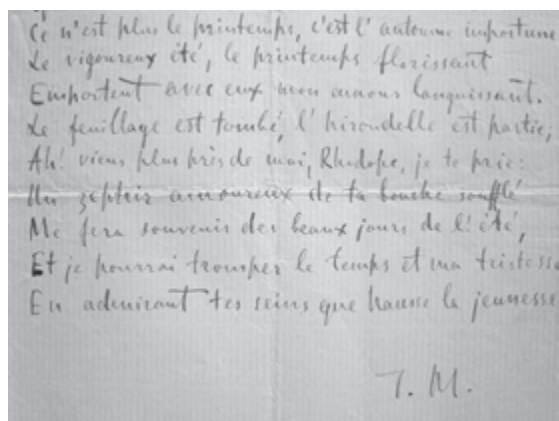 Ce n'est plus le printemps, c'est l'automne importune
Le vigoureux été, le printemps florissant
Emportent avec eux mon amour languissant.
Le feuillage est tombé, l'hirondelle est partie,
Ah! viens plus près de moi, Rhodope, je te prie:
Un zéphir amoureux de ta bouche soufflé
Me fera souvenir des beaux jours de l'été,
Et je pourrai tromper le temps et ma tristesse
En admirant tes seins que hausse la jeunesse
J. M.